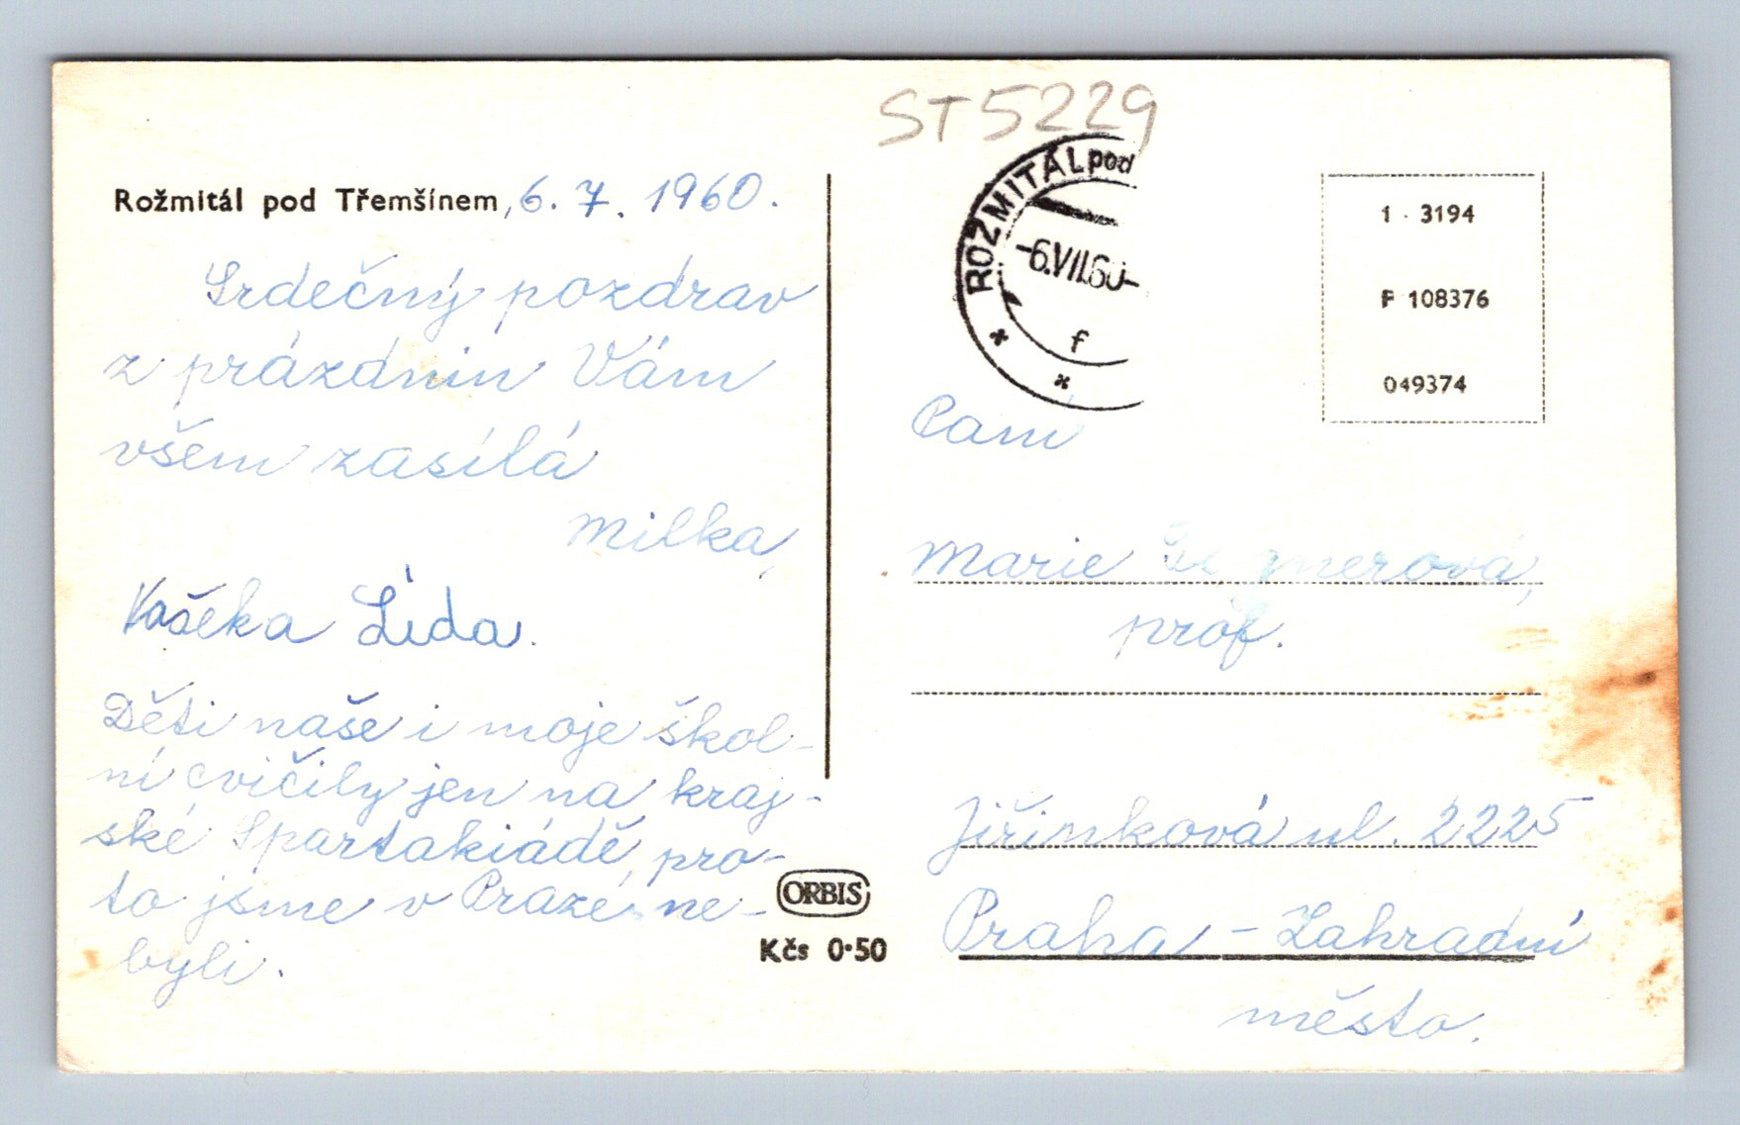 ST5229
Rožmitál pod Třemšínem, 6. 7. 1960.
Srdečný pozdrav
z prázdnin Vám
všem zasílá
Milka,
Vašeka Lída.
Děti naše i moje škol-
ní cvičily jen na kraj-
ské Spartakiádě, pro-
to jsme v Praze ne-
byli.
ORBIS
Kčs 0·50
ROŽMITÁL pod
-6.VII.60-
f
1 · 3194
F 108376
049374
Paní
Marie
prof.
Jiřinková ul. 2225
Praha - Zahradní
město.